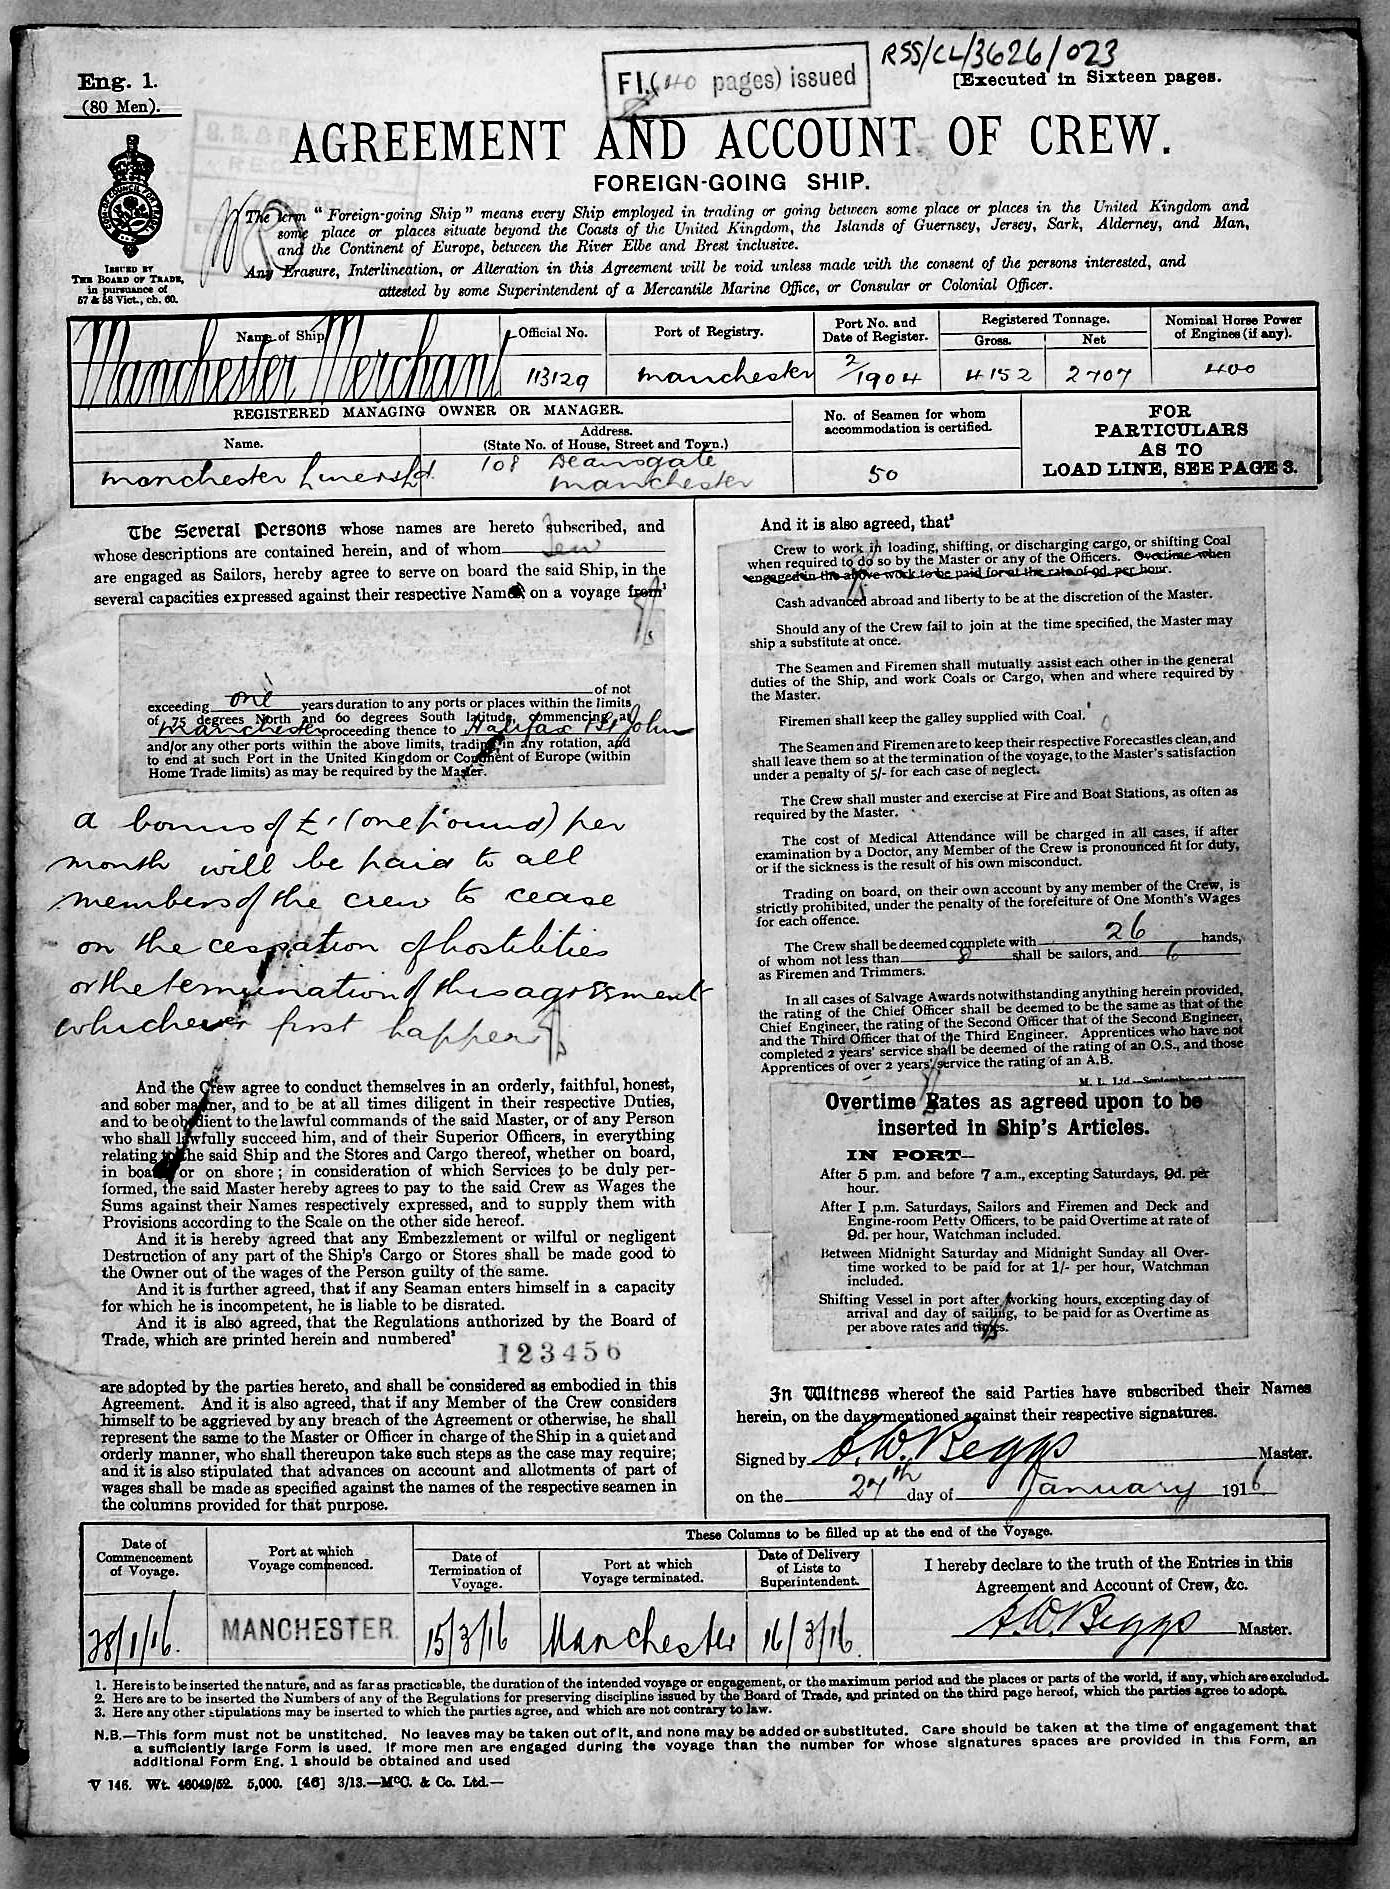 RSS/CL/3626/023
FI.(40 pages) issued
Eng. 1.
(80 Men).
[Executed in Sixteen pages.
AGREEMENT AND ACCOUNT OF CREW.
FOREIGN-GOING SHIP.
RECEIVED
ISSUED BY
THE BOARD OF TRADE,
in pursuance of
57 & 58 Vict., ch. 60.
The term "Foreign-going Ship" means every Ship employed in trading or going between some place or places in the United Kingdom and
some place or places situate beyond the Coasts of the United Kingdom, the Islands of Guernsey, Jersey, Sark, Alderney, and Man,
and the Continent of Europe, between the River Elbe and Brest inclusive.
Any Erasure, Interlineation, or Alteration in this Agreement will be void unless made with the consent of the persons interested, and
attested by some Superintendent of a Mercantile Marine Office, or Consular or Colonial Officer.
Name of Ship
Official No.
Port of Registry.
Port No. and
Date of Register.
Registered Tonnage.
Gross.
Net
Nominal Horse Power
of Engines (if any).
Manchester Merchant
113129
Manchester
2/1904
4152
2707
400
REGISTERED MANAGING OWNER OR MANAGER.
Name.
Address.
(State No. of House, Street and Town.)
No. of Seamen for whom
accommodation is certified.
FOR
PARTICULARS
AS TO
LOAD LINE, SEE PAGE 3.
Manchester Liners Ld
108 Deansgate
Manchester
50
The Several Persons whose names are hereto subscribed, and
whose descriptions are contained herein, and of whom ten
are engaged as Sailors, hereby agree to serve on board the said Ship, in the
several capacities expressed against their respective Names on a voyage from¹
of not
exceeding one years duration to any ports or places within the limits
of 75 degrees North and 60 degrees South latitude, commencing at
Manchester proceeding thence to Halifax & St John
and/or any other ports within the above limits, trading in any rotation, and
to end at such Port in the United Kingdom or Continent of Europe (within
Home Trade limits) as may be required by the Master.
a bonus of £1 (one pound) per
month will be paid to all
members of the crew to cease
on the cessation of hostilities
or the termination of this agreement
whichever first happens
And the Crew agree to conduct themselves in an orderly, faithful, honest,
and sober manner, and to be at all times diligent in their respective Duties,
and to be obedient to the lawful commands of the said Master, or of any Person
who shall lawfully succeed him, and of their Superior Officers, in everything
relating to the said Ship and the Stores and Cargo thereof, whether on board,
in boats or on shore; in consideration of which Services to be duly per-
formed, the said Master hereby agrees to pay to the said Crew as Wages the
Sums against their Names respectively expressed, and to supply them with
Provisions according to the Scale on the other side hereof.
And it is hereby agreed that any Embezzlement or wilful or negligent
Destruction of any part of the Ship's Cargo or Stores shall be made good to
the Owner out of the wages of the Person guilty of the same.
And it is further agreed, that if any Seaman enters himself in a capacity
for which he is incompetent, he is liable to be disrated.
And it is also agreed, that the Regulations authorized by the Board of
Trade, which are printed herein and numbered²
123456
are adopted by the parties hereto, and shall be considered as embodied in this
Agreement. And it is also agreed, that if any Member of the Crew considers
himself to be aggrieved by any breach of the Agreement or otherwise, he shall
represent the same to the Master or Officer in charge of the Ship in a quiet and
orderly manner, who shall thereupon take such steps as the case may require;
and it is also stipulated that advances on account and allotments of part of
wages shall be made as specified against the names of the respective seamen in
the columns provided for that purpose.
And it is also agreed, that³
Crew to work in loading, shifting, or discharging cargo, or shifting Coal
when required to do so by the Master or any of the Officers. Overtime when
engaged in the above work to be paid for at the rate of 9d. per hour.
Cash advanced abroad and liberty to be at the discretion of the Master.
Should any of the Crew fail to join at the time specified, the Master may
ship a substitute at once.
The Seamen and Firemen shall mutually assist each other in the general
duties of the Ship, and work Coals or Cargo, when and where required by
the Master.
Firemen shall keep the galley supplied with Coal.
The Seamen and Firemen are to keep their respective Forecastles clean, and
shall leave them so at the termination of the voyage, to the Master's satisfaction
under a penalty of 5/- for each case of neglect.
The Crew shall muster and exercise at Fire and Boat Stations, as often as
required by the Master.
The cost of Medical Attendance will be charged in all cases, if after
examination by a Doctor, any Member of the Crew is pronounced fit for duty,
or if the sickness is the result of his own misconduct.
Trading on board, on their own account by any member of the Crew, is
strictly prohibited, under the penalty of the forefeiture of One Month's Wages
for each offence.
The Crew shall be deemed complete with 26 hands,
of whom not less than 8 shall be sailors, and 6
as Firemen and Trimmers.
In all cases of Salvage Awards notwithstanding anything herein provided,
the rating of the Chief Officer shall be deemed to be the same as that of the
Chief Engineer, the rating of the Second Officer that of the Second Engineer,
and the Third Officer that of the Third Engineer. Apprentices who have not
completed 2 years' service shall be deemed of the rating of an O.S., and those
Apprentices of over 2 years' service the rating of an A.B.
M. L. Ltd.—September
Overtime Rates as agreed upon to be
inserted in Ship's Articles.
IN PORT—
After 5 p.m. and before 7 a.m., excepting Saturdays, 9d. per
hour.
After 1 p.m. Saturdays, Sailors and Firemen and Deck and
Engine-room Petty Officers, to be paid Overtime at rate of
9d. per hour, Watchman included.
Between Midnight Saturday and Midnight Sunday all Over-
time worked to be paid for at 1/- per hour, Watchman
included.
Shifting Vessel in port after working hours, excepting day of
arrival and day of sailing, to be paid for as Overtime as
per above rates and times.
In Witness whereof the said Parties have subscribed their Names
herein, on the days mentioned against their respective signatures.
Signed by A. W. Beggs Master.
on the 27th day of January 1916
These Columns to be filled up at the end of the Voyage.
Date of
Commencement
of Voyage.
Port at which
Voyage commenced.
Date of
Termination of
Voyage.
Port at which
Voyage terminated.
Date of Delivery
of Lists to
Superintendent.
I hereby declare to the truth of the Entries in this
Agreement and Account of Crew, &c.
28/1/16.
MANCHESTER.
15/3/16
Manchester
16/3/16.
A. W. Beggs Master.
1. Here is to be inserted the nature, and as far as practicable, the duration of the intended voyage or engagement, or the maximum period and the places or parts of the world, if any, which are excluded.
2. Here are to be inserted the Numbers of any of the Regulations for preserving discipline issued by the Board of Trade, and printed on the third page hereof, which the parties agree to adopt.
3. Here any other stipulations may be inserted to which the parties agree, and which are not contrary to law.
N.B.—This form must not be unstitched. No leaves may be taken out of it, and none may be added or substituted. Care should be taken at the time of engagement that
a sufficiently large Form is used. If more men are engaged during the voyage than the number for whose signatures spaces are provided in this Form, an
additional Form Eng. 1 should be obtained and used
V 146. Wt. 46049/52. 5,000. [46] 3/13.—McC. & Co. Ltd.—